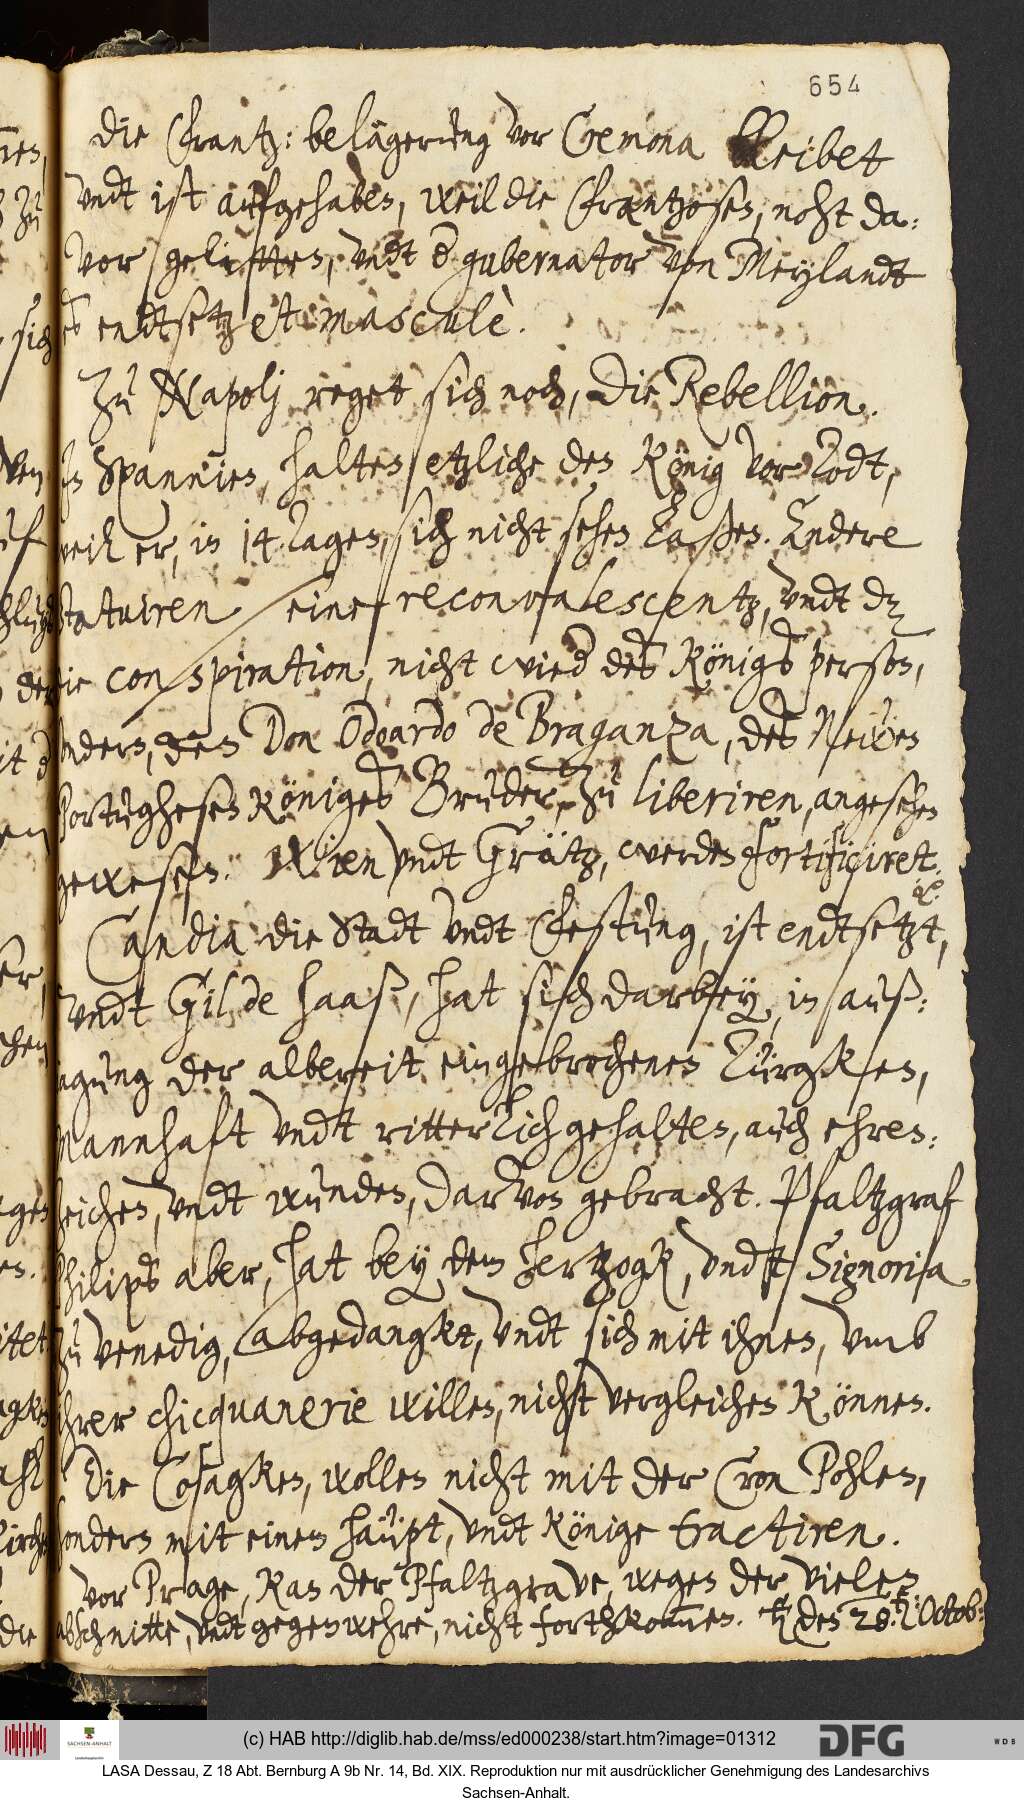 654
Die Frantz: belägerung vor Cremona bleibet
vndt ist aufgehaben, weil die Frantzosen, noht da:
vor gelitten, vndt d gubernator von Meylandt
es endtsetzet masculè.
Zu Napolj reget sich noch, die Rebellion.
In Spannien, halten etzliche den König vor Todt,
weil er, in 14 Tagen, sich nicht sehen laßen. Andere
statuiren eine reconvalescentz, vndt dz
die conspiration, nicht wied des Königs person,
sonders, den Don Odoardo de Braganza, des Newen
Portughesen Königes Bruder, zu liberiren, angesehen
gewesen. Wien vndt Grätz, werden fortificiret. &c.
Candia die Stadt vndt Festung, ist endtsetzt,
vndt Gil de Haas, hat sich darbey, in auß:
iagung der albereit eingebrochenen Türgken,
Mannhaft vndt ritterlich gehalten, auch ehren:
zeichen, vndt wunden, darvon gebracht. Pfaltzgraf
Philips aber, hat bey dem Hertzogk, vndt Signoria
zu Venedig, abgedangkt, vndt sich mit ihnen, vmb
ihrer chicquanerie willen, nicht vergleichen können.
Die Cosagken, wollen nicht mit der Cron Pohlen,
sonders mit einem Häupt, vndt Könige tractiren.
Vor Prage, kan der Pfaltzgrave, wegen der vielen
abschnitte, vndt gegenwehre, nicht forthkommen. ♄ den 28. Octob:
(c) HAB http://diglib.hab.de/mss/ed000238/start.htm?image=01312
SACHSEN-ANHALT
DFG
WDB
LASA Dessau, Z 18 Abt. Bernburg A 9b Nr. 14, Bd. XIX. Reproduktion nur mit ausdrücklicher Genehmigung des Landesarchivs
Sachsen-Anhalt.